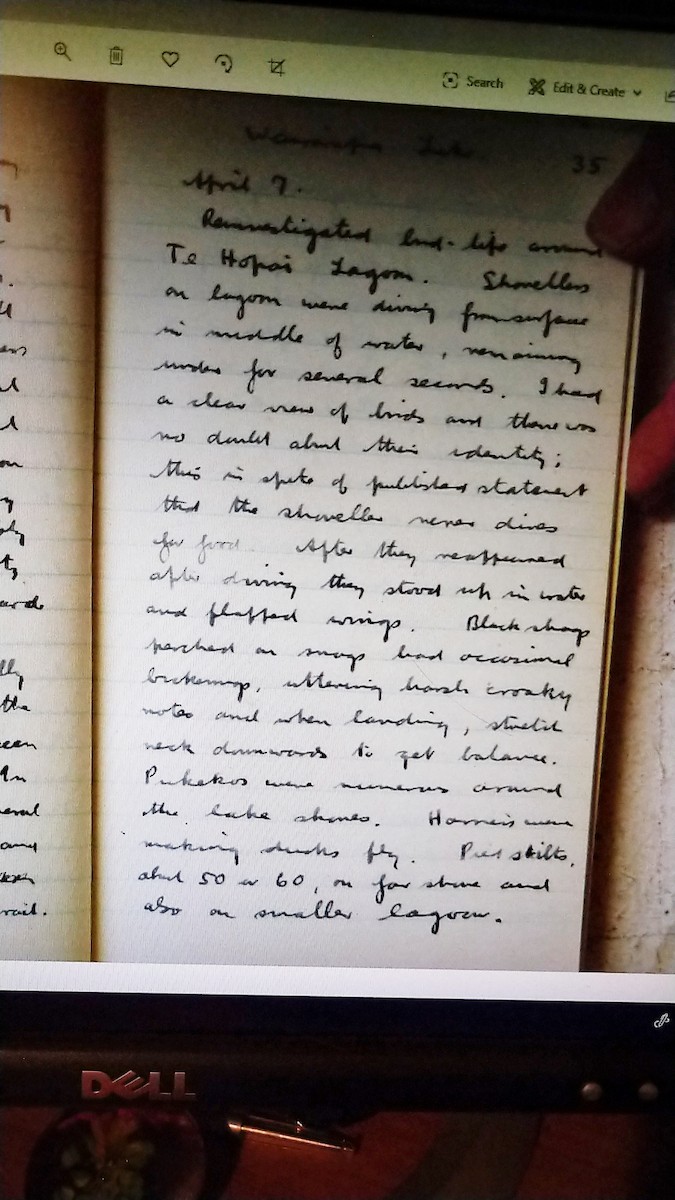 Search
Edit & Create
Wairarapa Lake
35
April 7.
Reinvestigated bird-life around
Te Hopai Lagoon. Shovellers
on lagoon were diving from surface
in middle of water, remaining
under for several seconds. I had
a clear view of birds and there was
no doubt about their identity;
this in spite of published statement
that the shoveller never dives
for food. After they reappeared
after diving they stood up in water
and flapped wings. Black shags
perched on snags had occasional
bickerings, uttering harsh croaky
notes and when landing, stretch
neck downwards to get balance.
Pukekos were numerous around
the lake shores. Harriers were
making ducks fly. Pied stilts,
about 50 or 60, on far shore and
also on smaller lagoon.
the
and
rail.
DELL